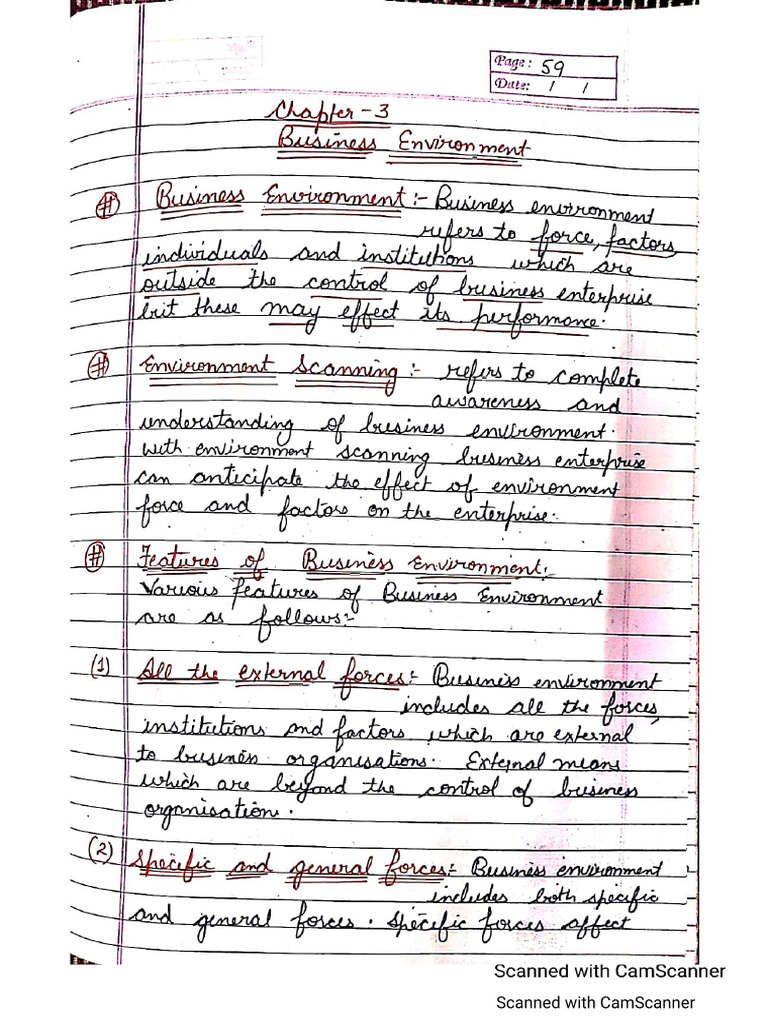 Page: 59
Date: / /
Chapter-3
Business Environment
# Business Environment :- Business environment
refers to force, factors,
individuals and institutions which are
outside the control of business enterprise
but these may effect its performance.
# Environment Scanning :- refers to complete
awareness and
understanding of business environment.
with environment scanning business enterprise
can anticipate the effect of environment
force and factors on the enterprise.
# Features of Business Environment.
Various features of Business Environment
are as follows:-
(1) All the external forces:- Business environment
includes all the forces,
institutions and factors which are external
to business organisations. External means
which are beyond the control of business
organisation.
(2) Specific and general forces:- Business environment
includes both specific
and general forces. Specific forces affect
Scanned with CamScanner
Scanned with CamScanner